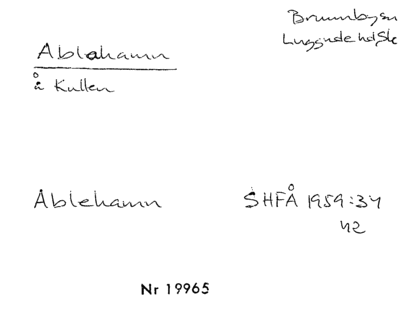 Brunnbysn
Luggude hd Sk
Ablahamn
å Kullen
Ablehamn SHFÅ 1959:34
42
Nr 19965